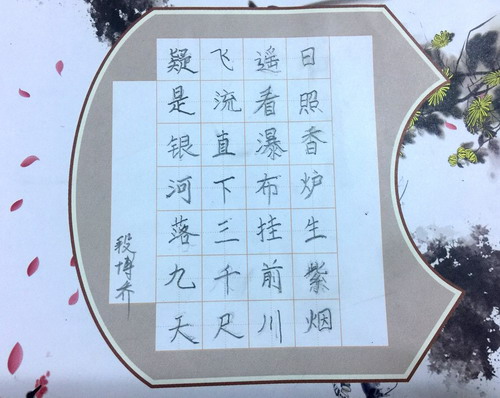 日照香炉生紫烟
遥看瀑布挂前川
飞流直下三千尺
疑是银河落九天
段博乔